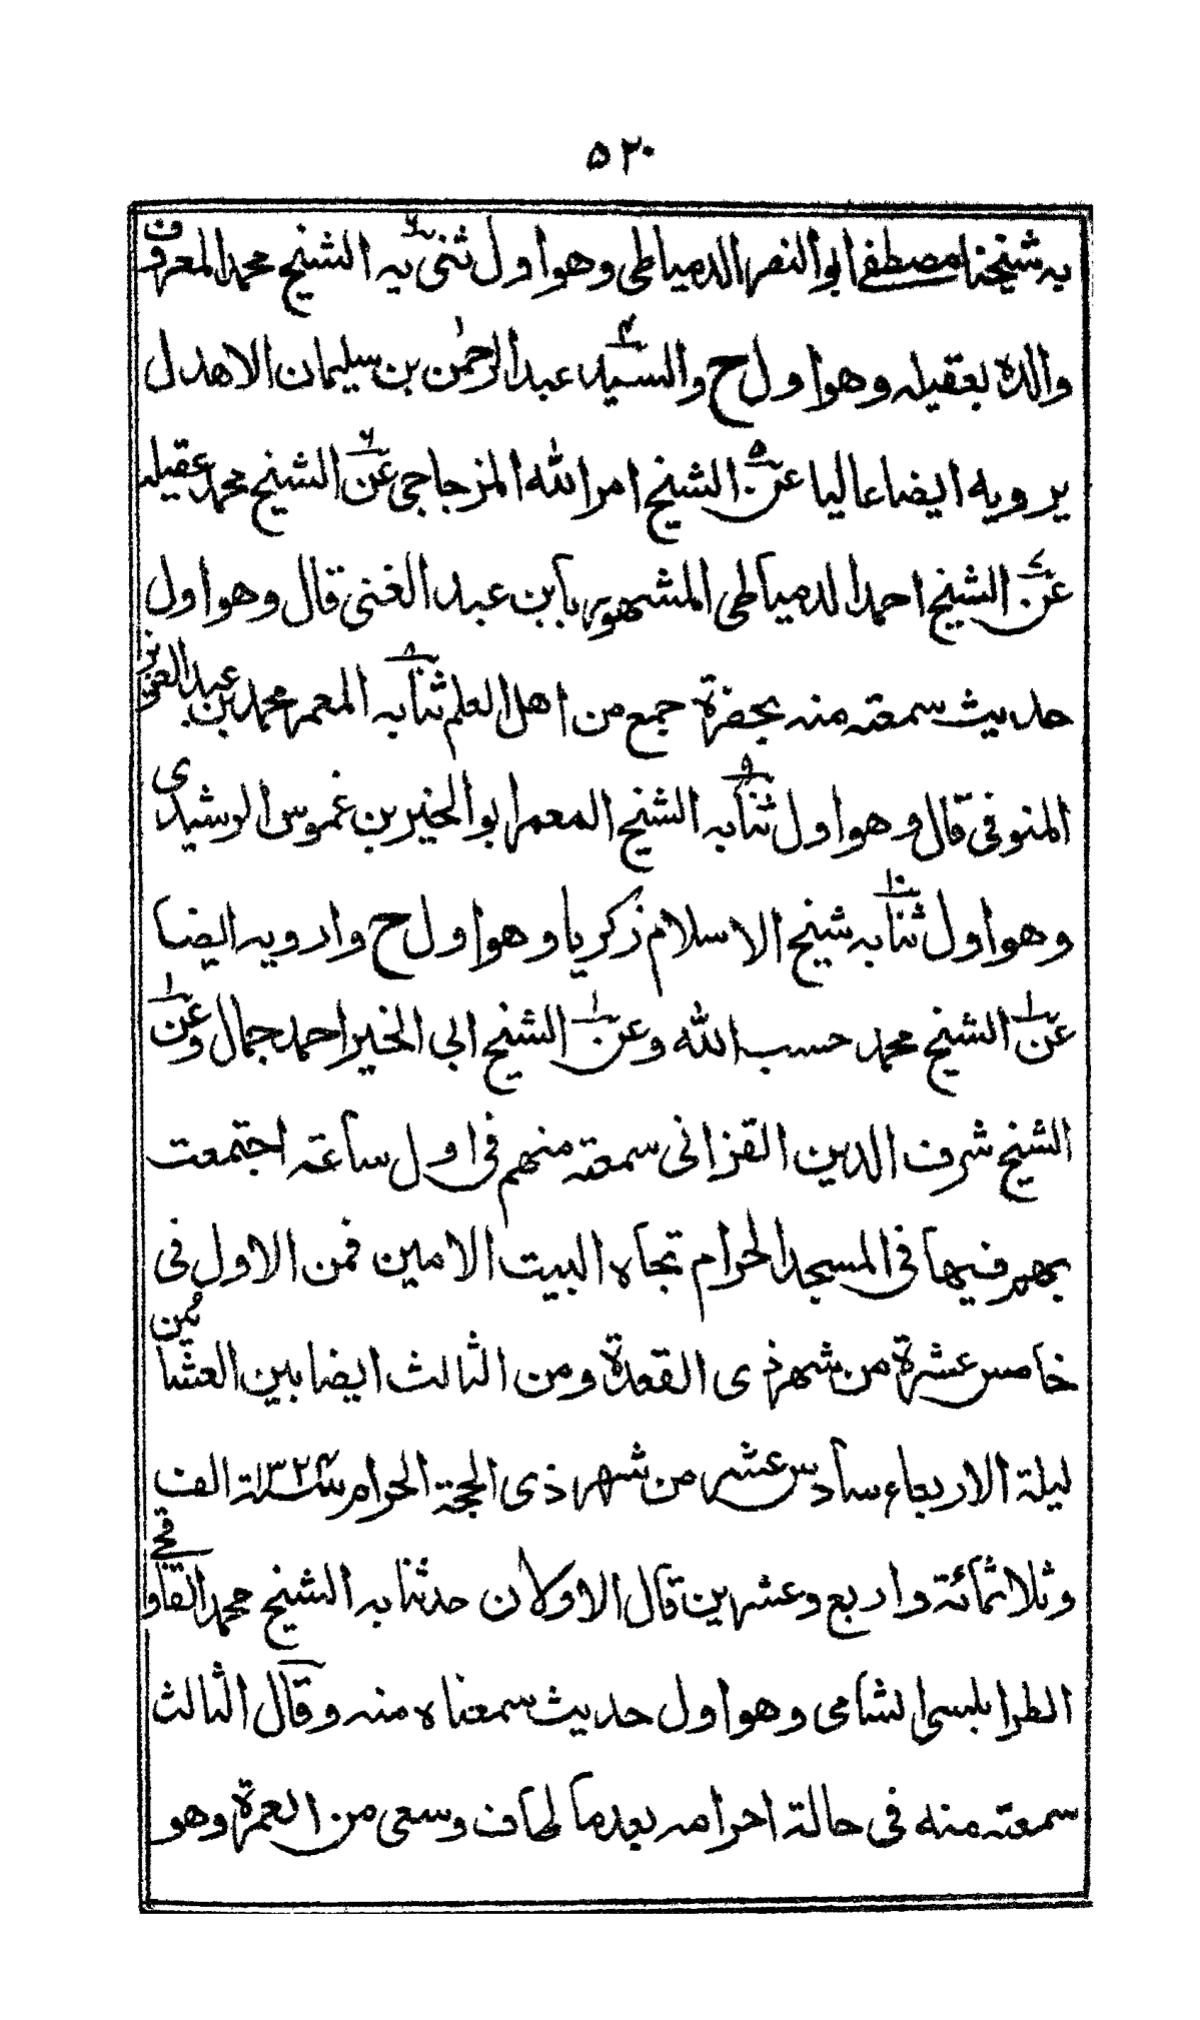 ٥٣٠
به شيخنا مصطفى ابو النصر الدمياطى وهو اول ثنى به الشيخ محمد المعروف
والده بعقيله وهو اول ح والسيد عبد الرحمن بن سليمان الاهدل
يرويه ايضا عاليا عن الشيخ امر الله المزجاجى عن الشيخ محمد عقيله
عن الشيخ احمد الدمياطى المشهور بابن عبد الغنى قال وهو اول
حديث سمعته منه بحضرة جمع من اهل العلم ثنا به المعمر محمد بن عبد العزيز
المنوفى قال وهو اول ثنا به الشيخ المعمر ابو الخير بن عموس الرشيدى
وهو اول ثنا به شيخ الاسلام زكريا وهو اول ح وارويه ايضا
عن الشيخ محمد حسب الله وعن الشيخ ابى الخير احمد جمال وعن
الشيخ شرف الدين القزانى سمعته منهم فى اول ساعة اجتمعت
بهم فيها فى المسجد الحرام تجاه البيت الامين فمن الاول فى
خامس عشرة من شهر ذى القعدة ومن الثالث ايضا بين العشائين
ليلة الاربعاء سادس عشر من شهر ذى الحجة الحرام سنة ١٣٢٤ الف
وثلاثمائة واربع وعشرين قال الاولان حدثنا به الشيخ محمد القاوقجى
الطرابلسى الشامى وهو اول حديث سمعناه منه وقال الثالث
سمعته منه فى حالة احرامه بعد ما طاف وسعى من العمرة وهو